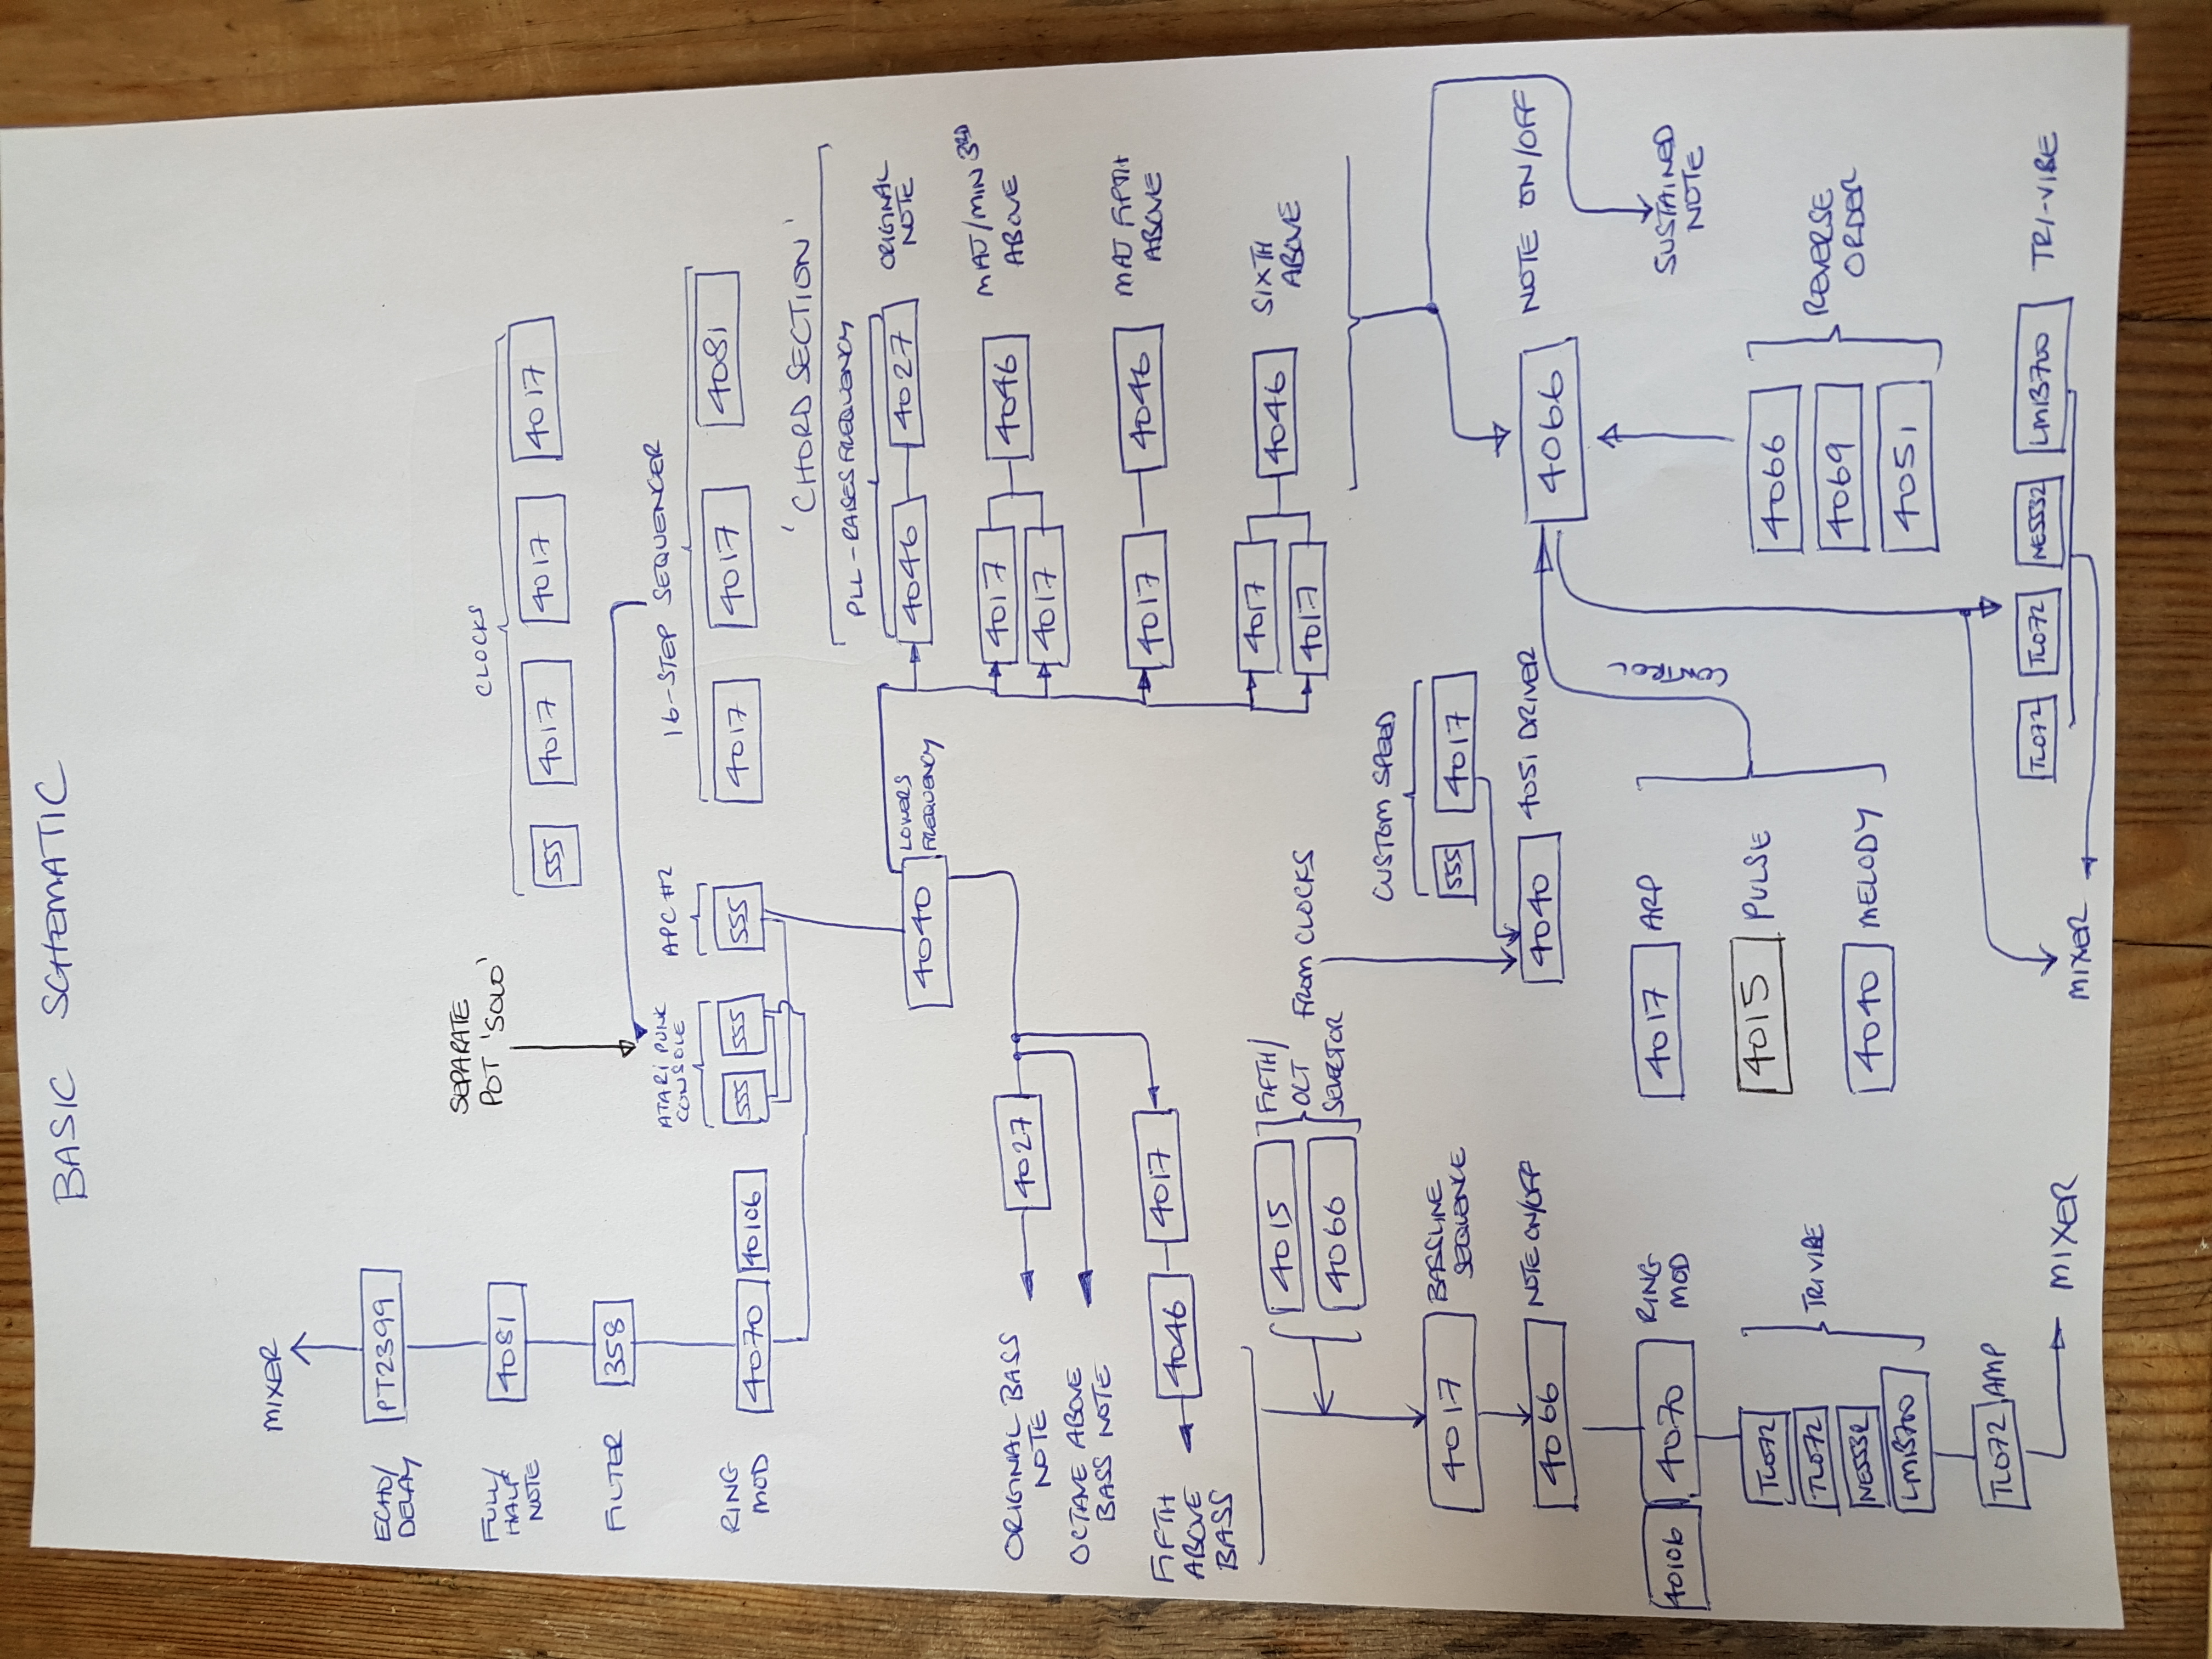 BASIC SCHEMATIC
MIXER
ECHO/
DELAY
PT2399
FULL/
HALF
NOTE
4081
FILTER
358
RING
MOD
4070
40106
SEPARATE
POT 'SOLO'
ATARI PUNK
CONSOLE
555
555
APC #2
555
CLOCKS
555
4017
4017
4017
16-STEP SEQUENCER
4017
4017
4081
4040
LOWERS
FREQUENCY
'CHORD SECTION'
PLL - RAISES FREQUENCY
4046
4027
ORIGINAL
NOTE
4017
4017
4046
MAJ/MIN 3RD
ABOVE
4017
4046
MAJ FIFTH
ABOVE
4017
4017
4046
SIXTH
ABOVE
ORIGINAL BASS
NOTE
4027
OCTAVE ABOVE
BASS NOTE
FIFTH
ABOVE
BASS
4046
4017
4015
4066
FIFTH/
OCT
SELECTOR
4017
BASSLINE
SEQUENCE
4066
NOTE ON/OFF
40106
4070
RING
MOD
TL072
TL072
NE5532
LM13700
TRIVIBE
TL072
AMP
MIXER
FROM CLOCKS
CUSTOM SPEED
555
4017
4040
4051 DRIVER
4017
ARP
4015
PULSE
4040
MELODY
CONTROL
4066
NOTE ON/OFF
SUSTAINED
NOTE
4066
4069
4051
REVERSE
ORDER
TL072
TL072
NE5532
LM13700
TRI-VIBE
MIXER